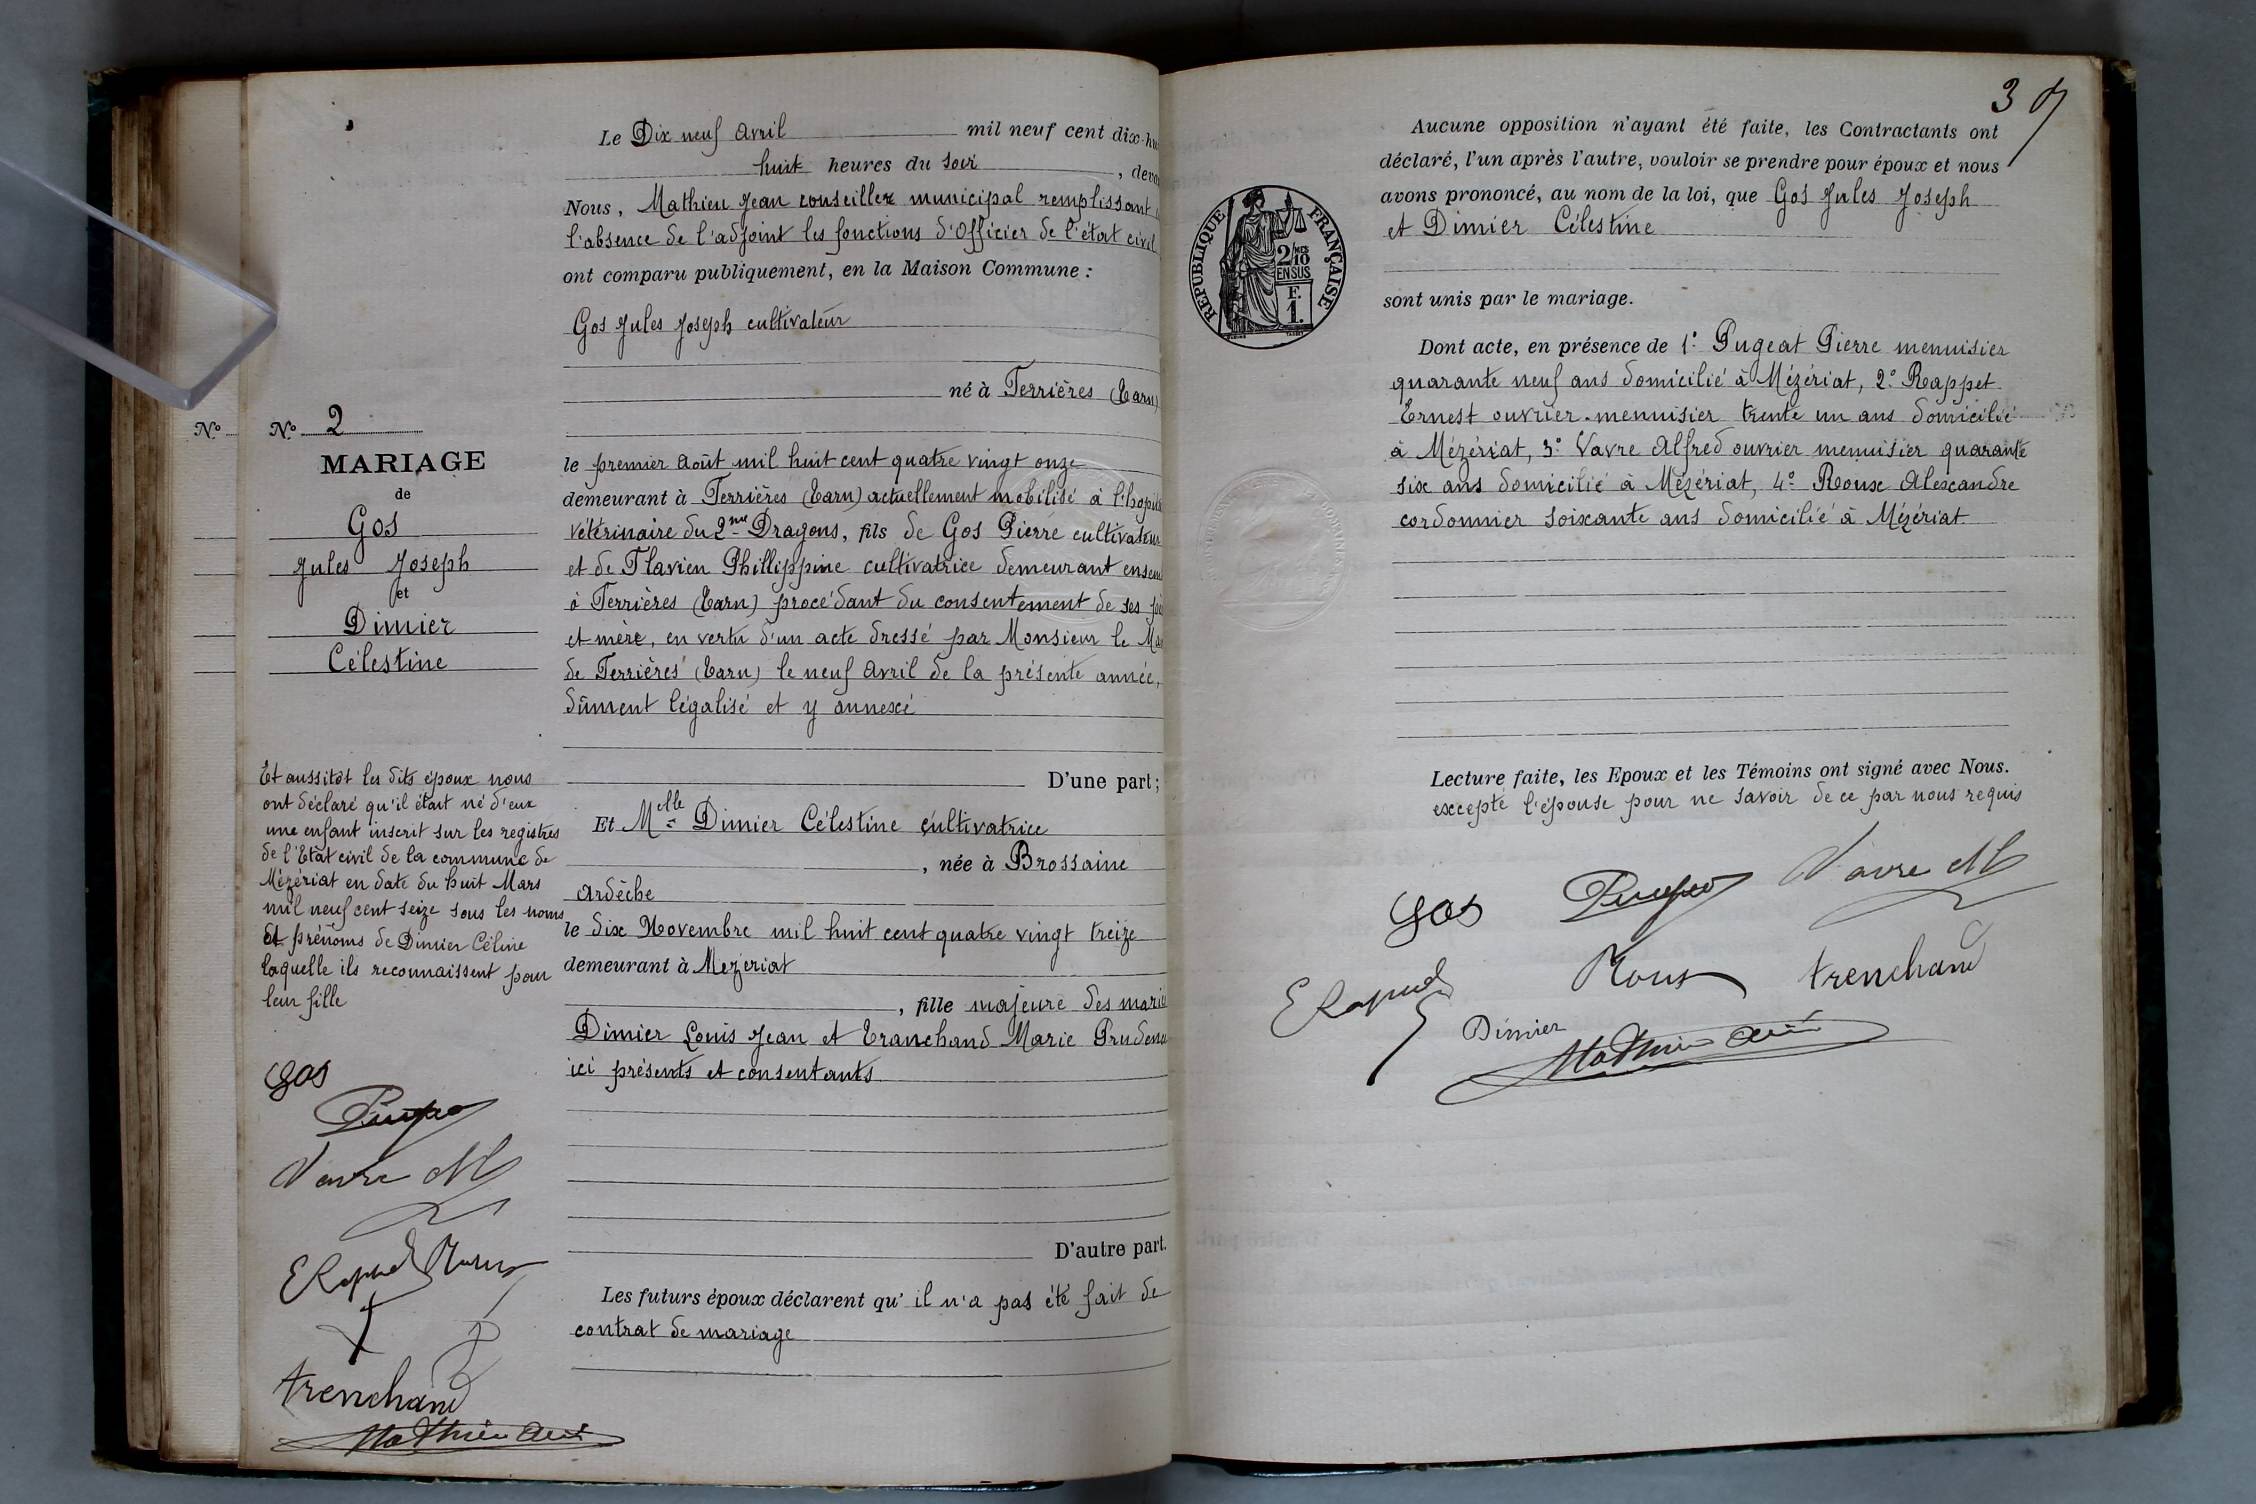 Le Dix neuf avril mil neuf cent dix-hu
huit heures du soir , deva
Nous, Mathieu Jean conseiller municipal remplissant
l'absence de l'adjoint les fonctions d'Officier de l'état civil
ont comparu publiquement, en la Maison Commune :
Gos Jules Joseph cultivateur
né à Ferrières (Tarn)
Nº
Nº 2
MARIAGE
de
Gos
Jules Joseph
et
Dimier
Célestine
le premier août mil huit cent quatre vingt onze
demeurant à Ferrières (Tarn) actuellement mobilisé à l'hopita
vétérinaire du 2me Dragons, fils de Gos Pierre cultivateur
et de Flavien Phillippine cultivatrice demeurant ensem
à Ferrières (Tarn) procédant du consentement de ses pè
et mère, en vertu d'un acte dressé par Monsieur le Mai
de Ferrières (Tarn) le neuf avril de la présente année,
dûment légalisé et y annexé
D'une part;
Et Melle Dimier Célestine cultivatrice
, née à Brossaine
Ardèche
le dix Novembre mil huit cent quatre vingt treize
demeurant à Mezeriat
, fille majeure des marié
Dimier Louis Jean et Tranchand Marie Prudence
ici présents et consentants
D'autre part.
Les futurs époux déclarent qu' il n'a pas été fait de
contrat de mariage
Et aussitôt les dits époux nous
ont déclaré qu'il était né d'eux
une enfant inscrit sur les registres
de l'Etat civil de la commune de
Mézériat en date du huit Mars
mil neuf cent seize sous les noms
et prénoms de Dimier Céline
laquelle ils reconnaissent pour
leur fille
Gos
Vavre
E Rappet Roux
trenchand
Mathieu
3
Aucune opposition n'ayant été faite, les Contractants ont
déclaré, l'un après l'autre, vouloir se prendre pour époux et nous
avons prononcé, au nom de la loi, que Gos Jules Joseph
et Dimier Célestine
sont unis par le mariage.
RÉPUBLIQUE FRANÇAISE
2/10MES
EN SUS
F.
1.
Dont acte, en présence de 1º Pugeat Pierre menuisier
quarante neuf ans domicilié à Mézériat, 2º Rappet
Ernest ouvrier-menuisier trente un ans domicilié
à Mézériat, 3º Vavre Alfred ouvrier menuisier quarante
six ans domicilié à Mézériat, 4º Roux Alexandre
cordonnier soixante ans domicilié à Mézériat
Lecture faite, les Epoux et les Témoins ont signé avec Nous.
excepté l'épouse pour ne savoir de ce par nous requis
Gos Vavre
E Rappet Roux trenchand
Dimier
Mathieu